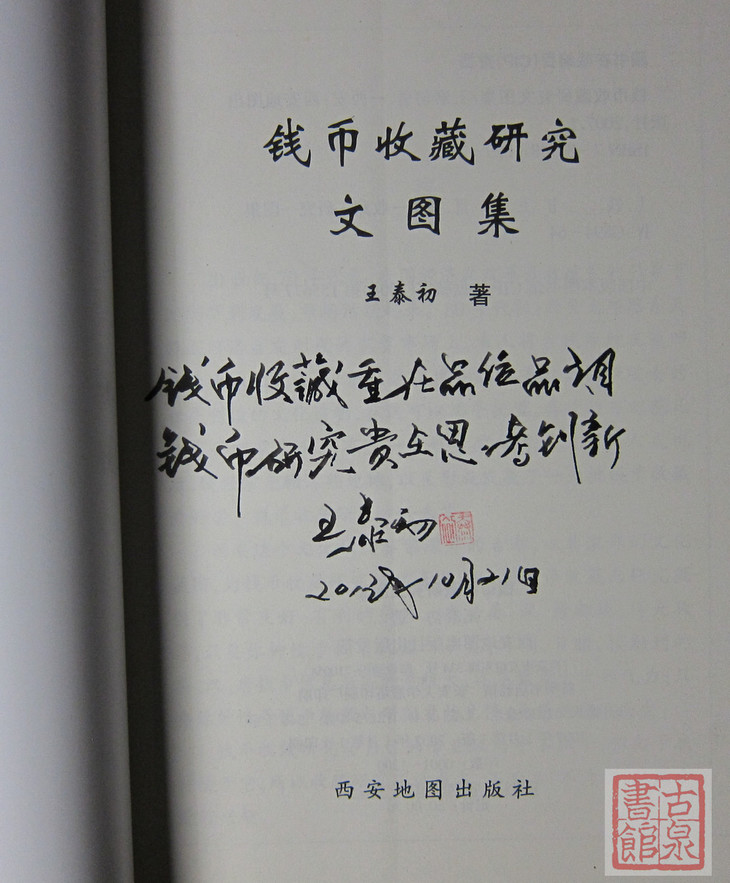 钱币收藏研究
文图集
王泰初 著
钱币收藏重在品位品调
钱币研究贵在思考创新
王泰初
2012年10月21日
西安地图出版社
古泉
書館